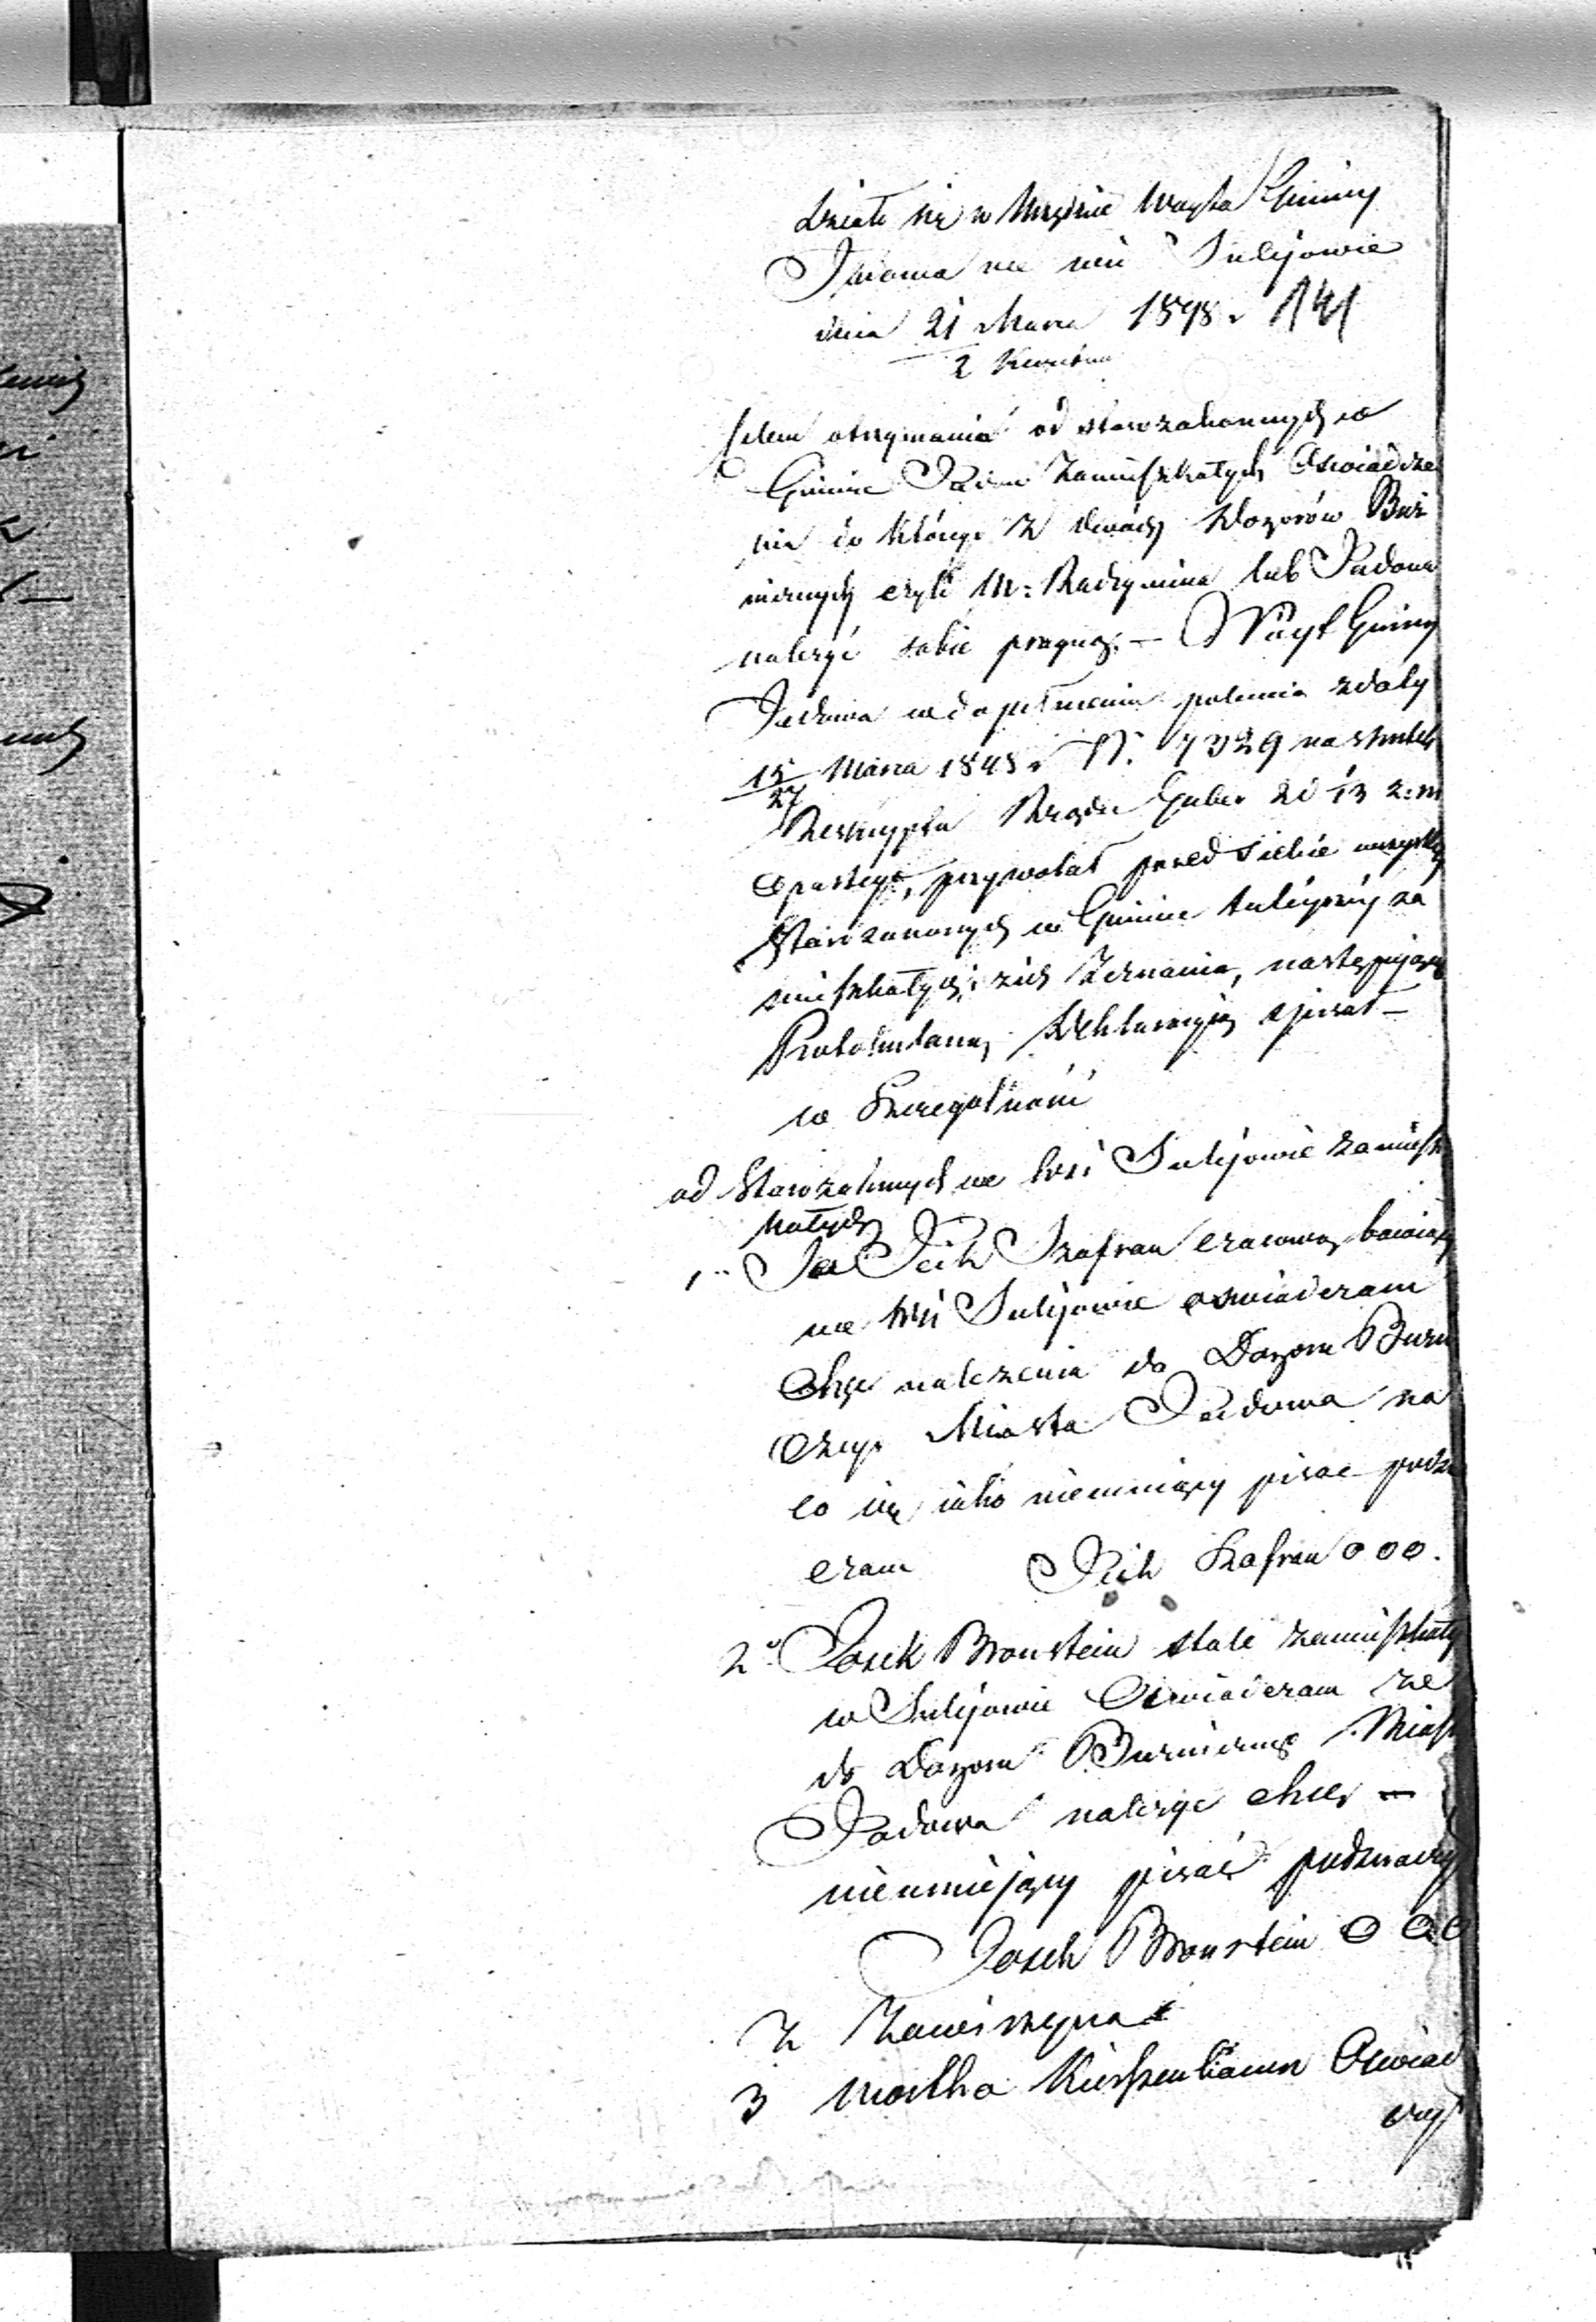 Działo się w Urzędzie Wójta Gminy
Jadowa we wsi Sulejowie
dnia 21 Marca 1848 r 141
2 Kwietnia
Celem otrzymania od starozakonnych w
Gminie Jadów zamieszkałych Oświadcze
nia do którego z dwóch Dozorów Buż
niczych czyli M: Radzymina lub Jadowa
należyć sobie pragną, — Wójt Gminy
Jadowa w dopełnieniu polecenia z daty
15/27 Marca 1848 r N. 7329 na skutek
Reskryptu Rządu Guber
opartego, przywołał przed siebie wszystkich
Starozakonnych w Gminie tutejszej za
mieszkałych, z ich Zeznania, następującą
Protokularną Deklaracyją spisał —
w Szczegolności
od Starozakonnych we wsi Sulejowie zamiesz
kałych
1o Ja Icik Szafran czasowo bawiący
we wsi Sulejowie oświadczam
Chęć należenia do Dozoru Bużni
czego Miasta Jadowa na
co się jako nieumiejący pisac podzna
czam Icik Szafran o o o.
2o Josek Bronstein stale zamieszkały
w Sulejowie Oswiadczam że
do Dozoru Bużniczego Miast
Jadowa należyć chcę —
nieumiejący pisać podznaczył
Josek Bronstein O O O
Z Zawiszyna
3 Moska Kirszenbaum Oswiad
czył